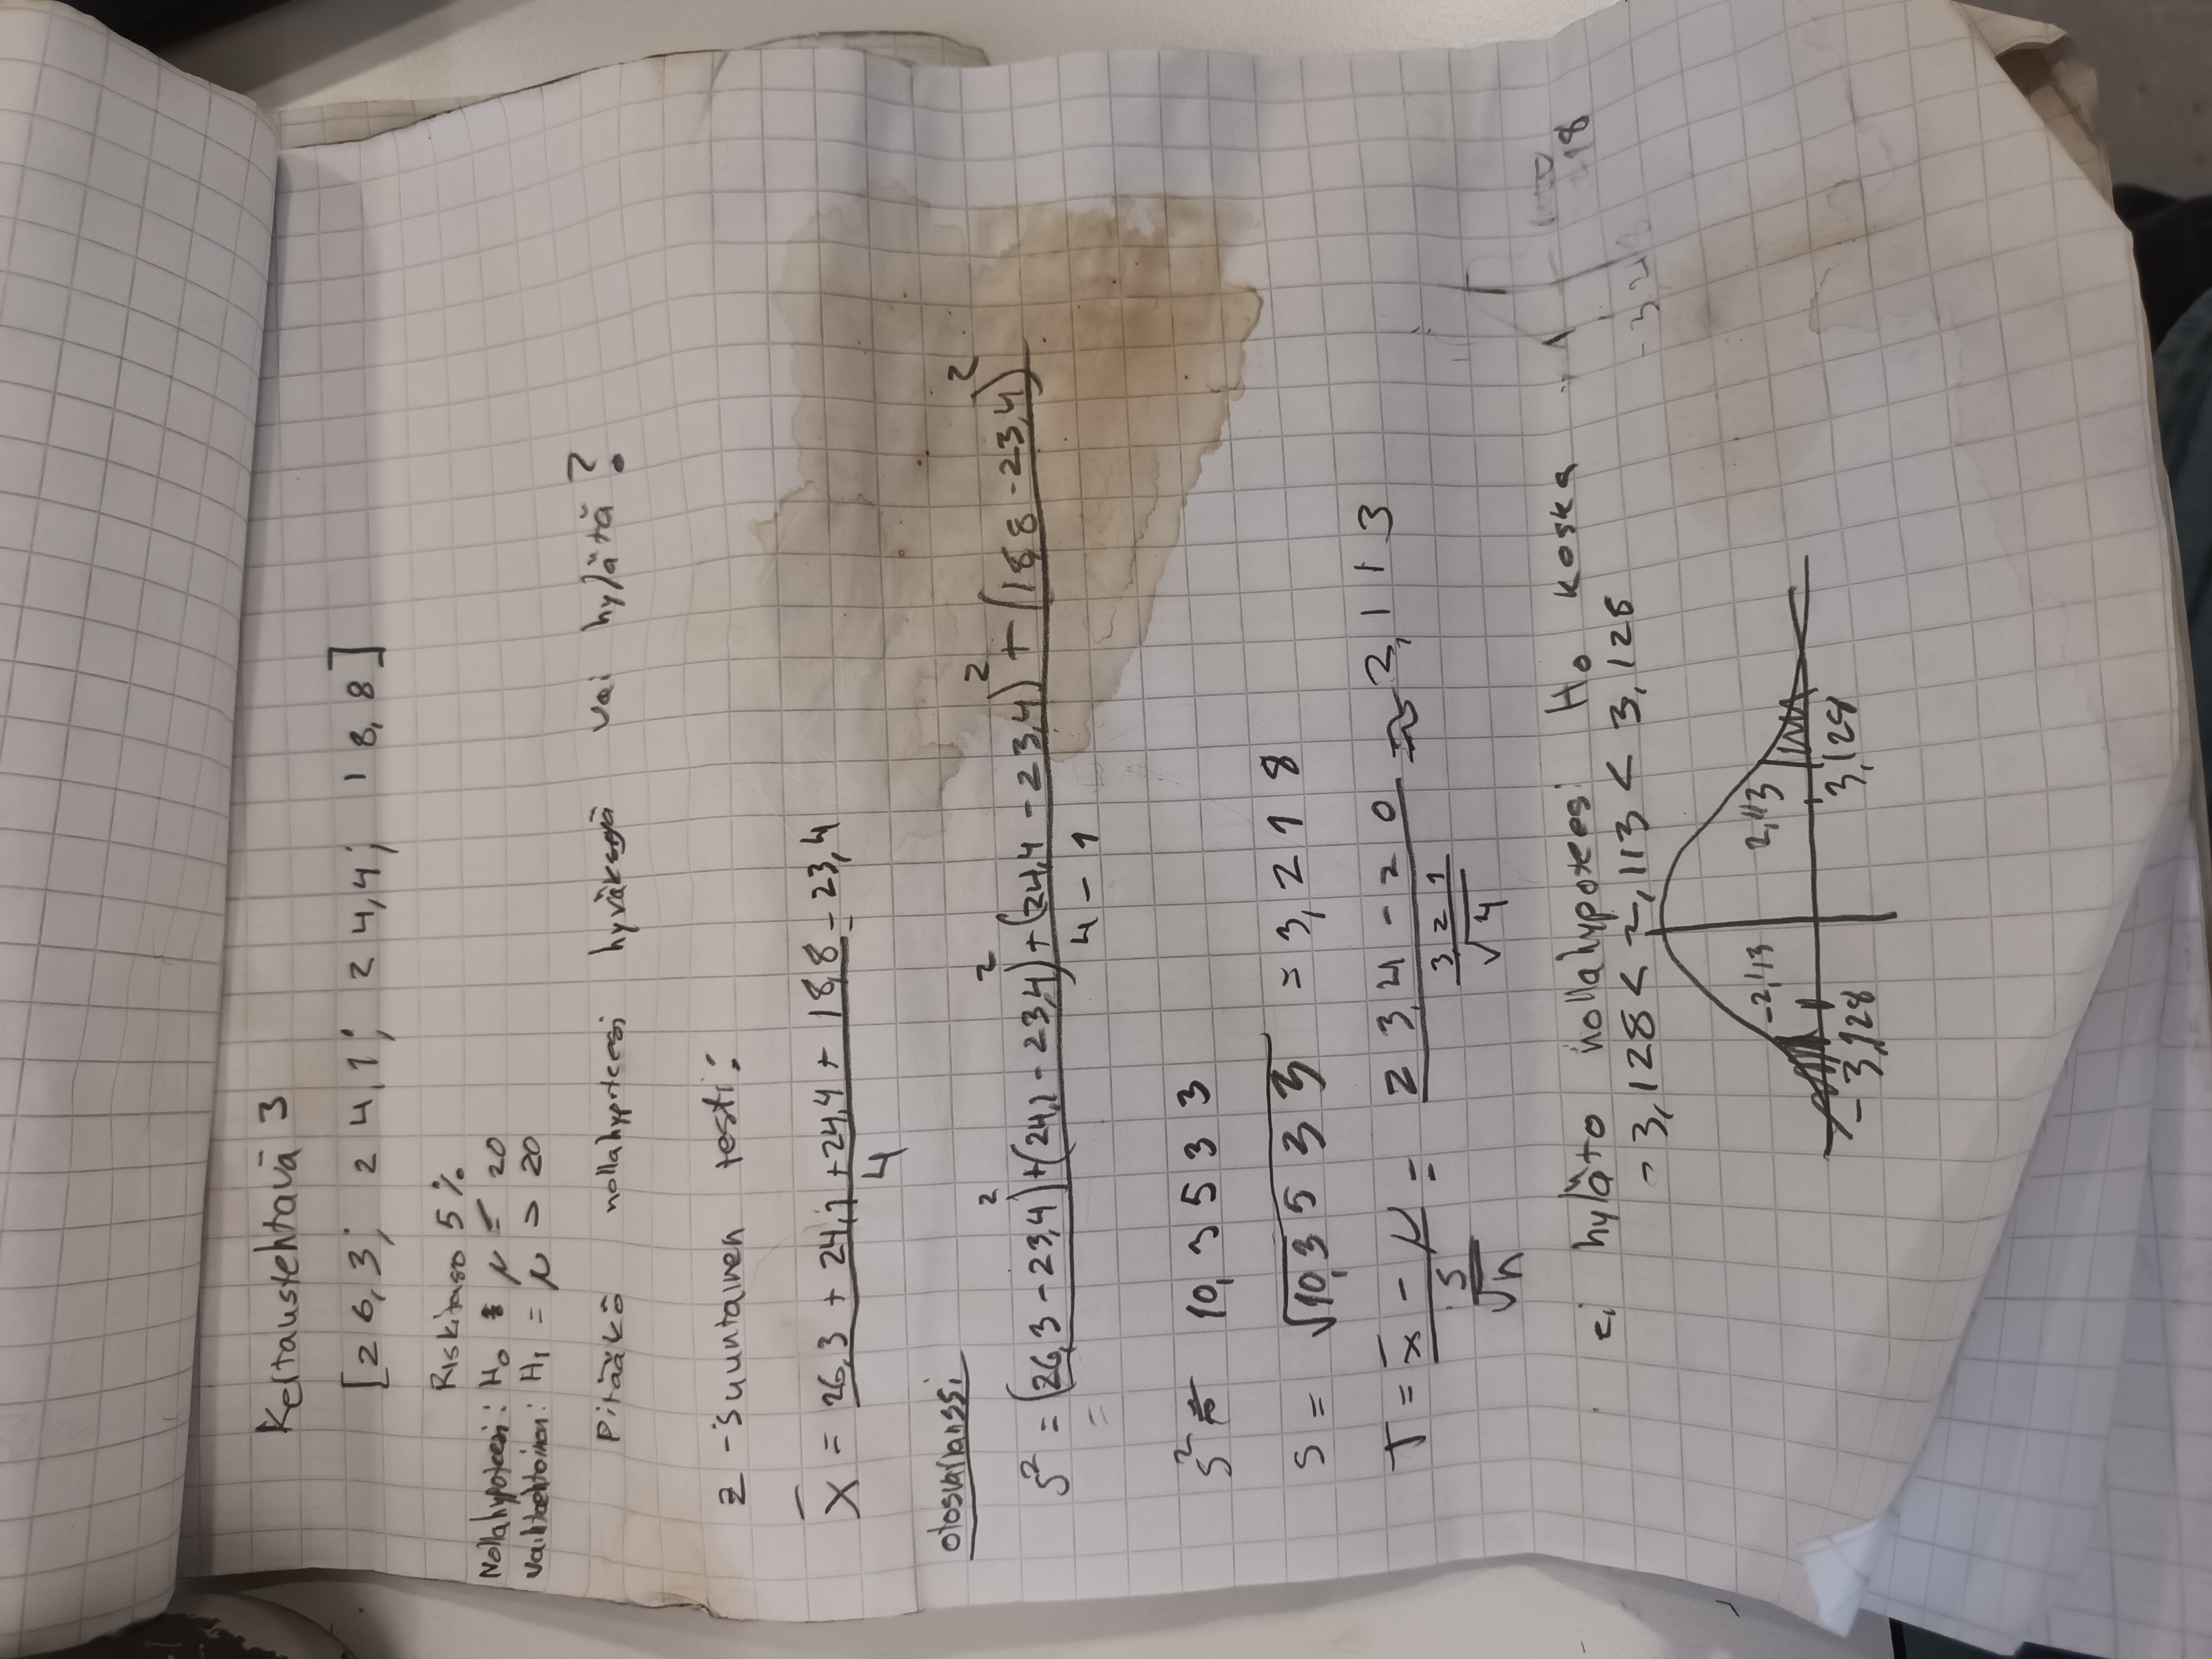 Kertaustehtävä 3
[26,3; 24,1; 24,4; 18,8]
Riskitaso 5 %
Nollahypoteesi: H₀ : μ = 20
vaihtoehtoinen: H₁ = μ > 20
Pitääkö nollahypoteesi hyväksyä vai hylätä?
2 -suuntainen testi:
x̄ = (26,3 + 24,1 + 24,4 + 18,8) / 4 = 23,4
otosvarianssi
s² = ((26,3 - 23,4)² + (24,1 - 23,4)² + (24,4 - 23,4)² + (18,8 - 23,4)²) / (4 - 1)
=
s² = 10,3533
s = √10,3533 = 3,218
T = (x̄ - μ) / (s / √n) = (23,4 - 20) / (3,21 / √4) ≈ 2,113
ei hylätä nollahypoteesi H₀ koska
-3,128 < 2,113 < 3,128
-2,113 2,113
-3,128 3,128